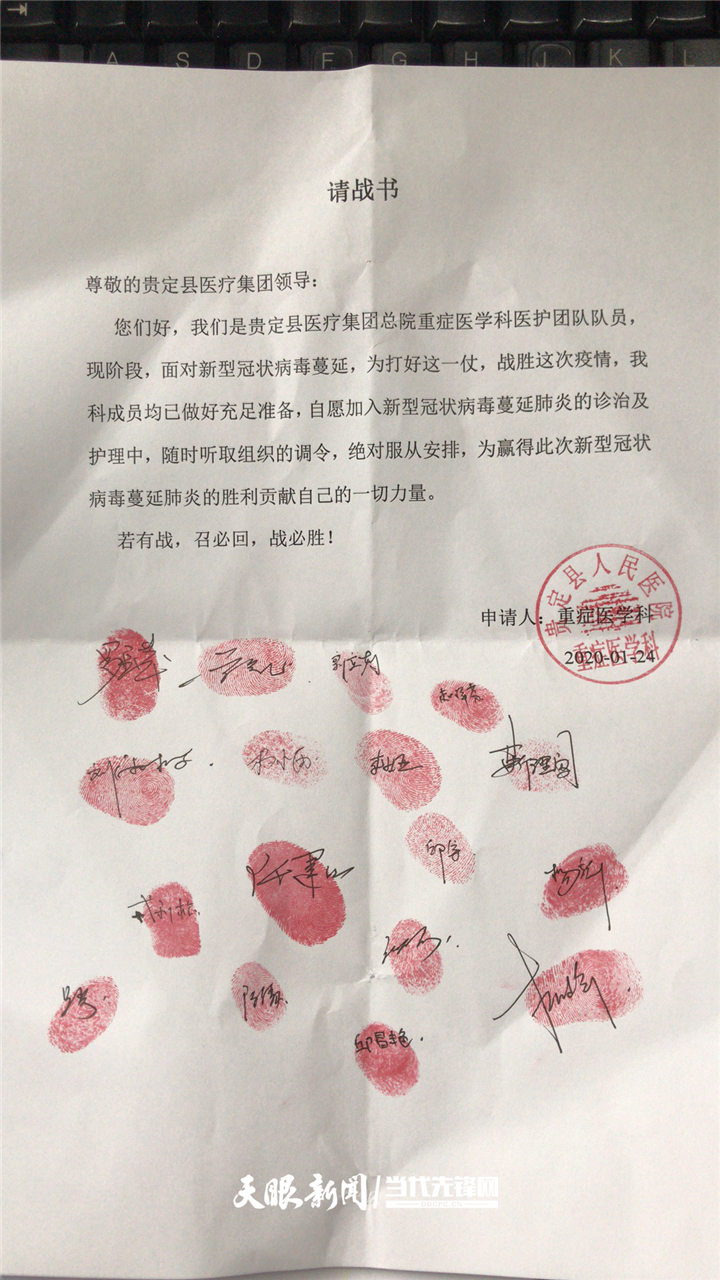 A S D F G H J K L
请战书
尊敬的贵定县医疗集团领导：
您们好，我们是贵定县医疗集团总院重症医学科医护团队队员，
现阶段，面对新型冠状病毒蔓延，为打好这一仗，战胜这次疫情，我
科成员均已做好充足准备，自愿加入新型冠状病毒蔓延肺炎的诊治及
护理中，随时听取组织的调令，绝对服从安排，为赢得此次新型冠状
病毒蔓延肺炎的胜利贡献自己的一切力量。
若有战，召必回，战必胜！
申请人：重症医学科
2020-01-24
贵定县人民医院
重症医学科
邱宇
邱昌艳
天眼新闻/当代先锋网